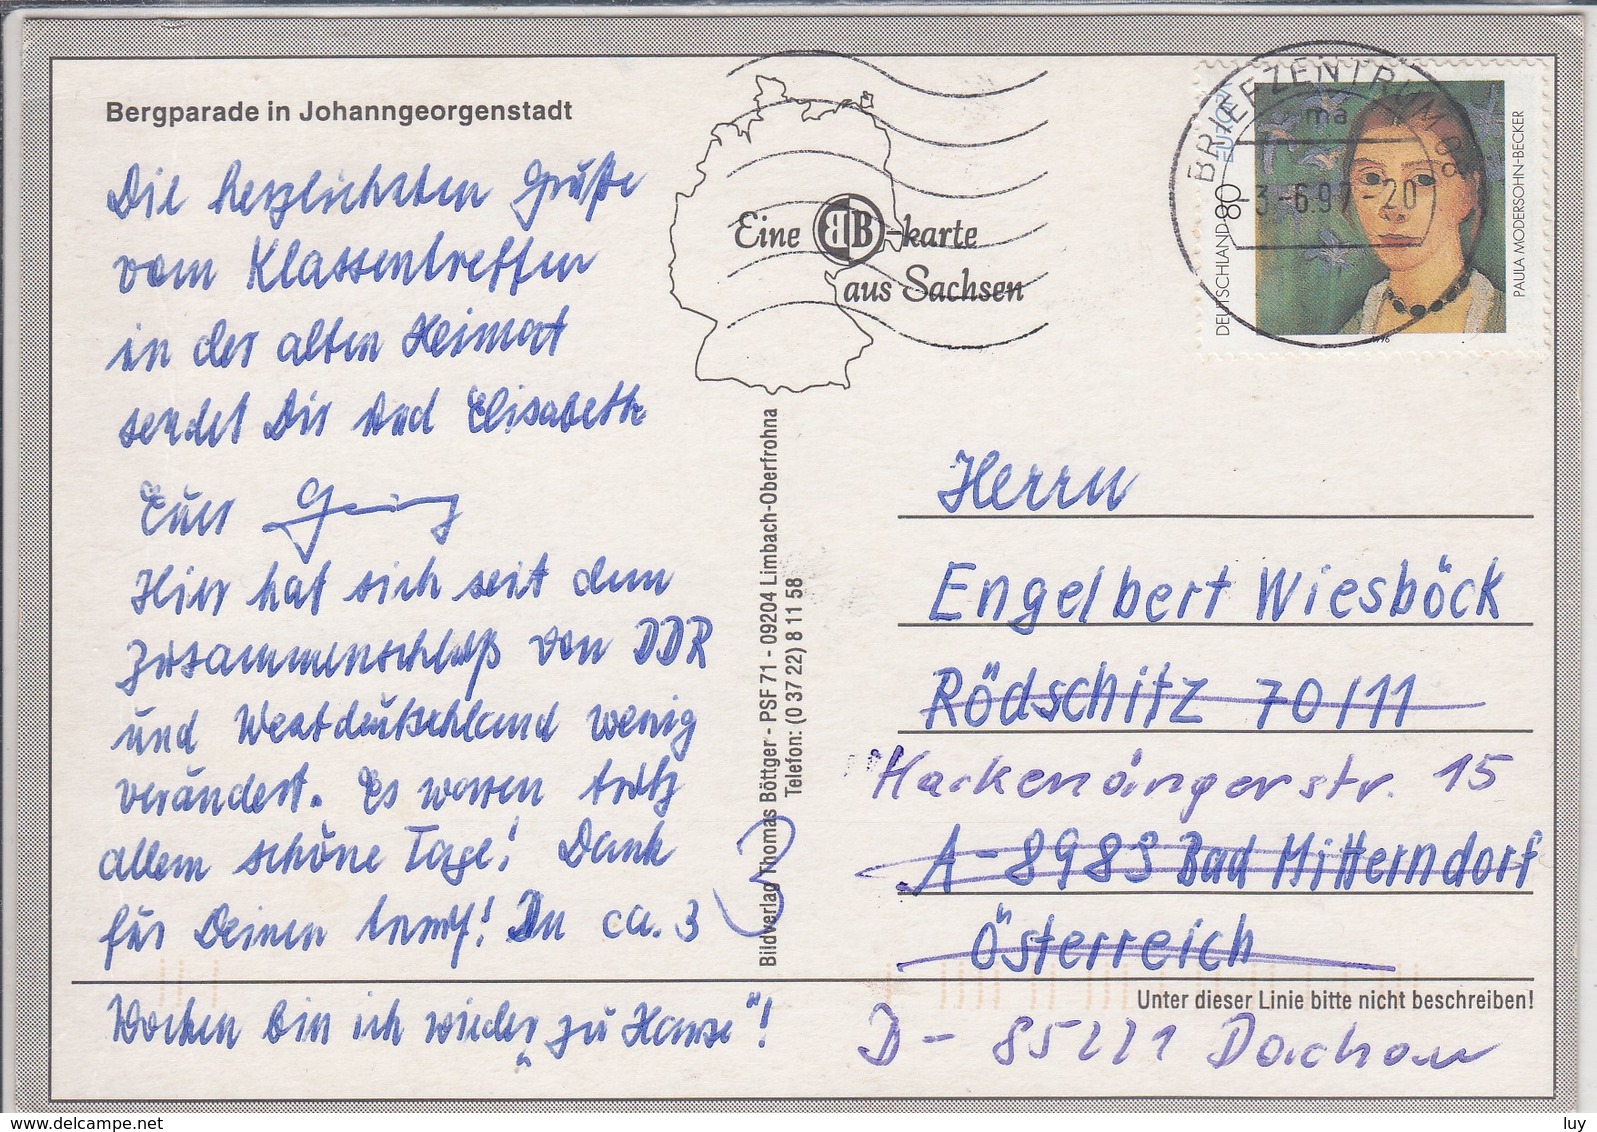 Bergparade in Johanngeorgenstadt
Die herzlichsten Grüße
vom Klassentreffen
in der alten Heimat
sendet Dir und Elisabeth
Euer
Hier hat sich seit dem
Zusammenschluß von DDR
und Westdeutschland wenig
verändert. Es waren trotz
allem schöne Tage! Dank
für Deinen Anruf! In ca. 3
Wochen bin ich wieder "zu Hause"!
Eine BB-karte
aus Sachsen
Bildverlag Thomas Böttger - PSF 71 - 09204 Limbach-Oberfrohna
Telefon: (0 37 22) 8 11 58
3
BRIEFZENTRUM
ma
3.-6.97-20
DEUTSCHLAND 80
EUROPA
PAULA MODERSOHN-BECKER
1996
Herrn
Engelbert Wiesböck
Rödschitz 70/11
Hackenängerstr. 15
A-8983 Bad Mitterndorf
Österreich
Unter dieser Linie bitte nicht beschreiben!
D- 85221 Dachau
delcampe.net
luy